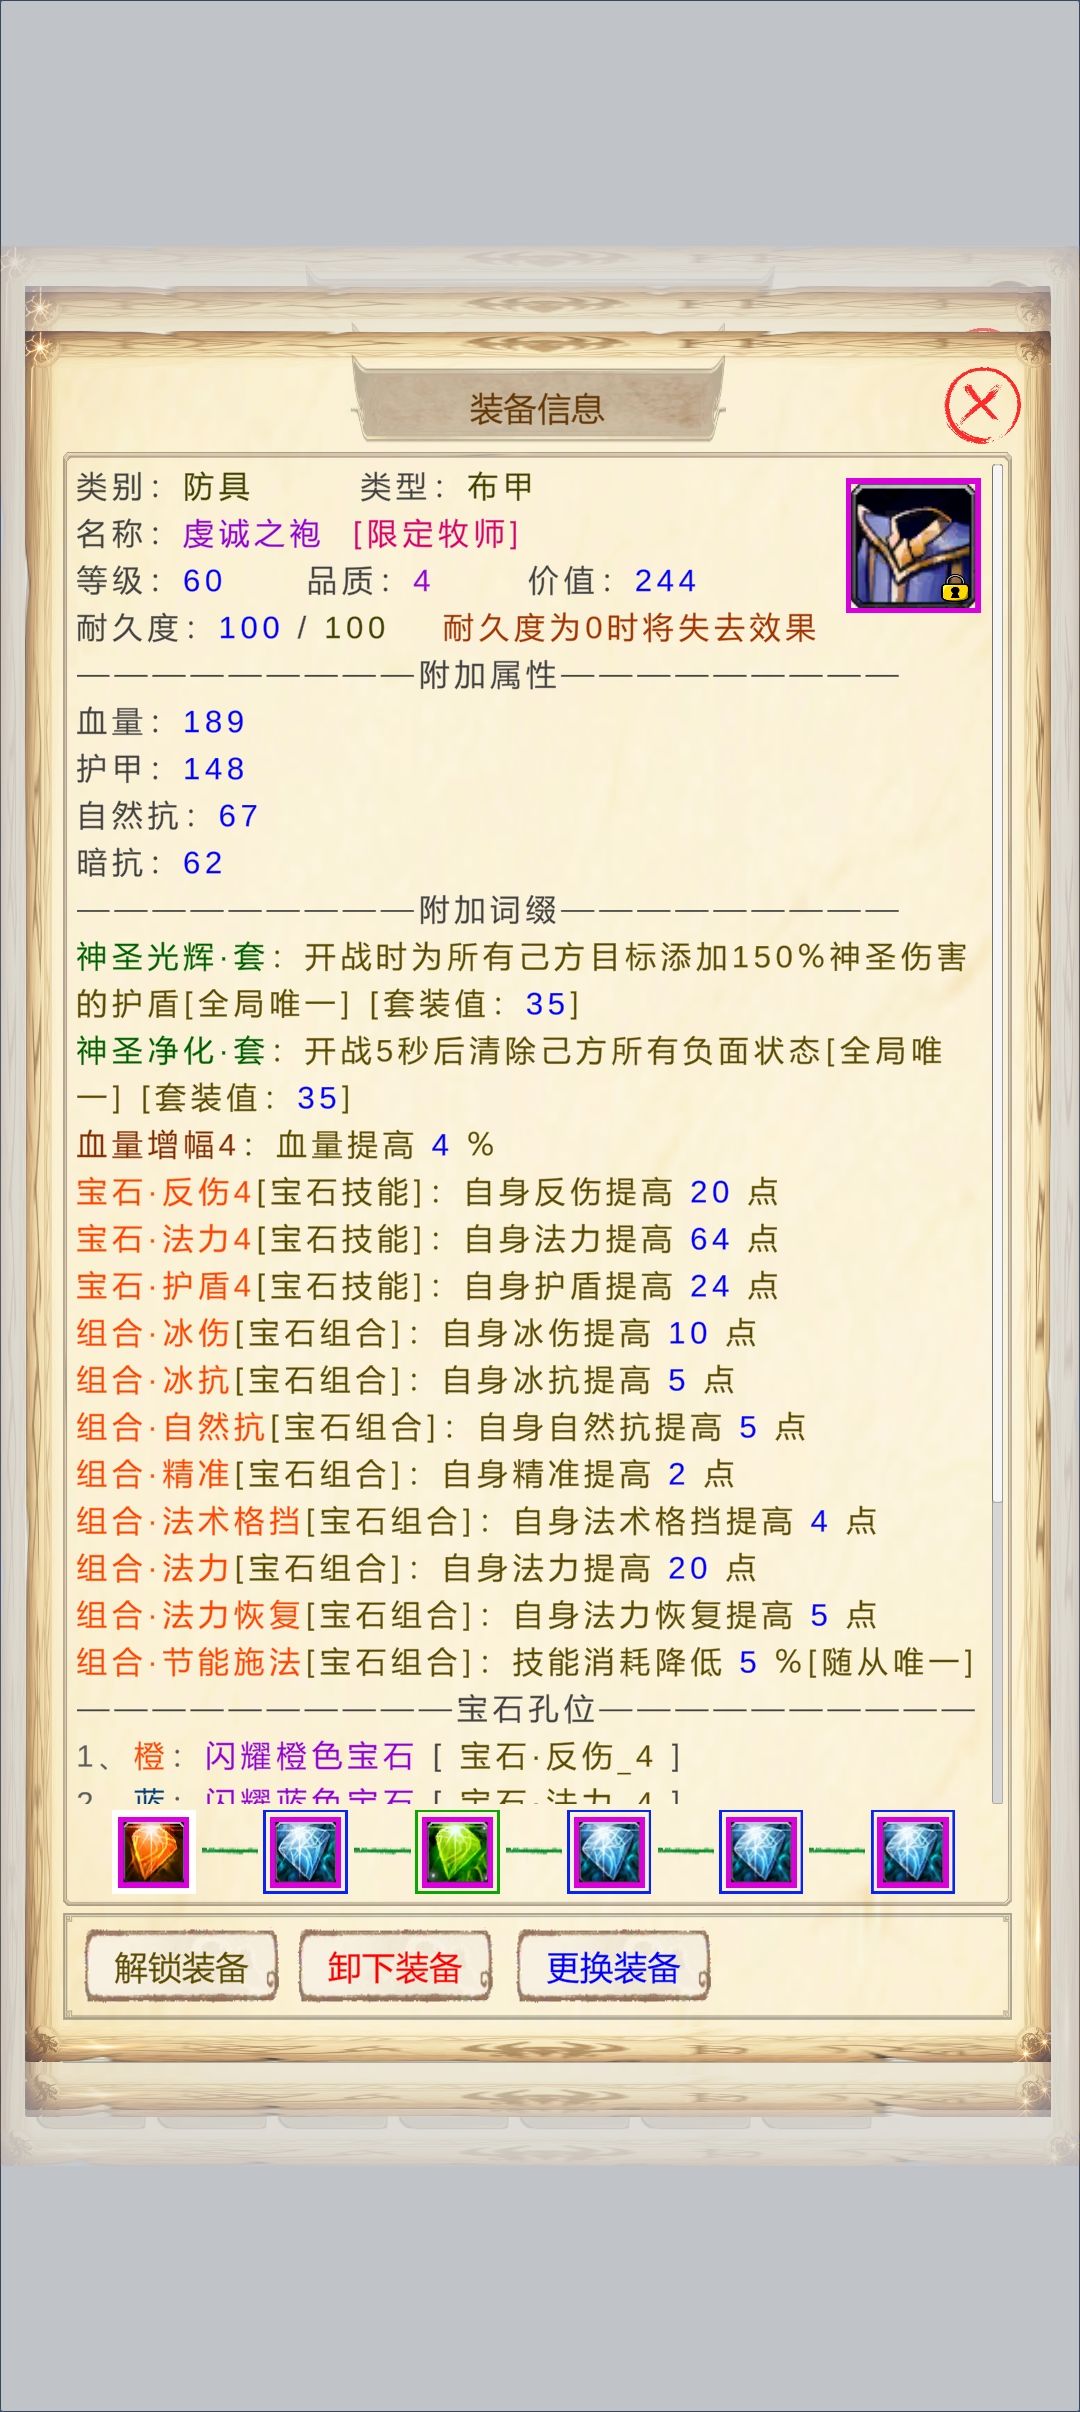 装备信息
类别：防具 类型：布甲
名称：虔诚之袍 [限定牧师]
等级：60 品质：4 价值：244
耐久度：100 / 100 耐久度为0时将失去效果
——————————附加属性——————————
血量：189
护甲：148
自然抗：67
暗抗：62
——————————附加词缀——————————
神圣光辉·套：开战时为所有己方目标添加150%神圣伤害
的护盾[全局唯一] [套装值：35]
神圣净化·套：开战5秒后清除己方所有负面状态[全局唯
一] [套装值：35]
血量增幅4：血量提高 4 %
宝石·反伤4[宝石技能]：自身反伤提高 20 点
宝石·法力4[宝石技能]：自身法力提高 64 点
宝石·护盾4[宝石技能]：自身护盾提高 24 点
组合·冰伤[宝石组合]：自身冰伤提高 10 点
组合·冰抗[宝石组合]：自身冰抗提高 5 点
组合·自然抗[宝石组合]：自身自然抗提高 5 点
组合·精准[宝石组合]：自身精准提高 2 点
组合·法术格挡[宝石组合]：自身法术格挡提高 4 点
组合·法力[宝石组合]：自身法力提高 20 点
组合·法力恢复[宝石组合]：自身法力恢复提高 5 点
组合·节能施法[宝石组合]：技能消耗降低 5 %[随从唯一]
———————————宝石孔位———————————
1、橙：闪耀橙色宝石 [ 宝石·反伤_4 ]
2、蓝：闪耀蓝色宝石 [ 宝石·法力_4 ]
解锁装备 卸下装备 更换装备